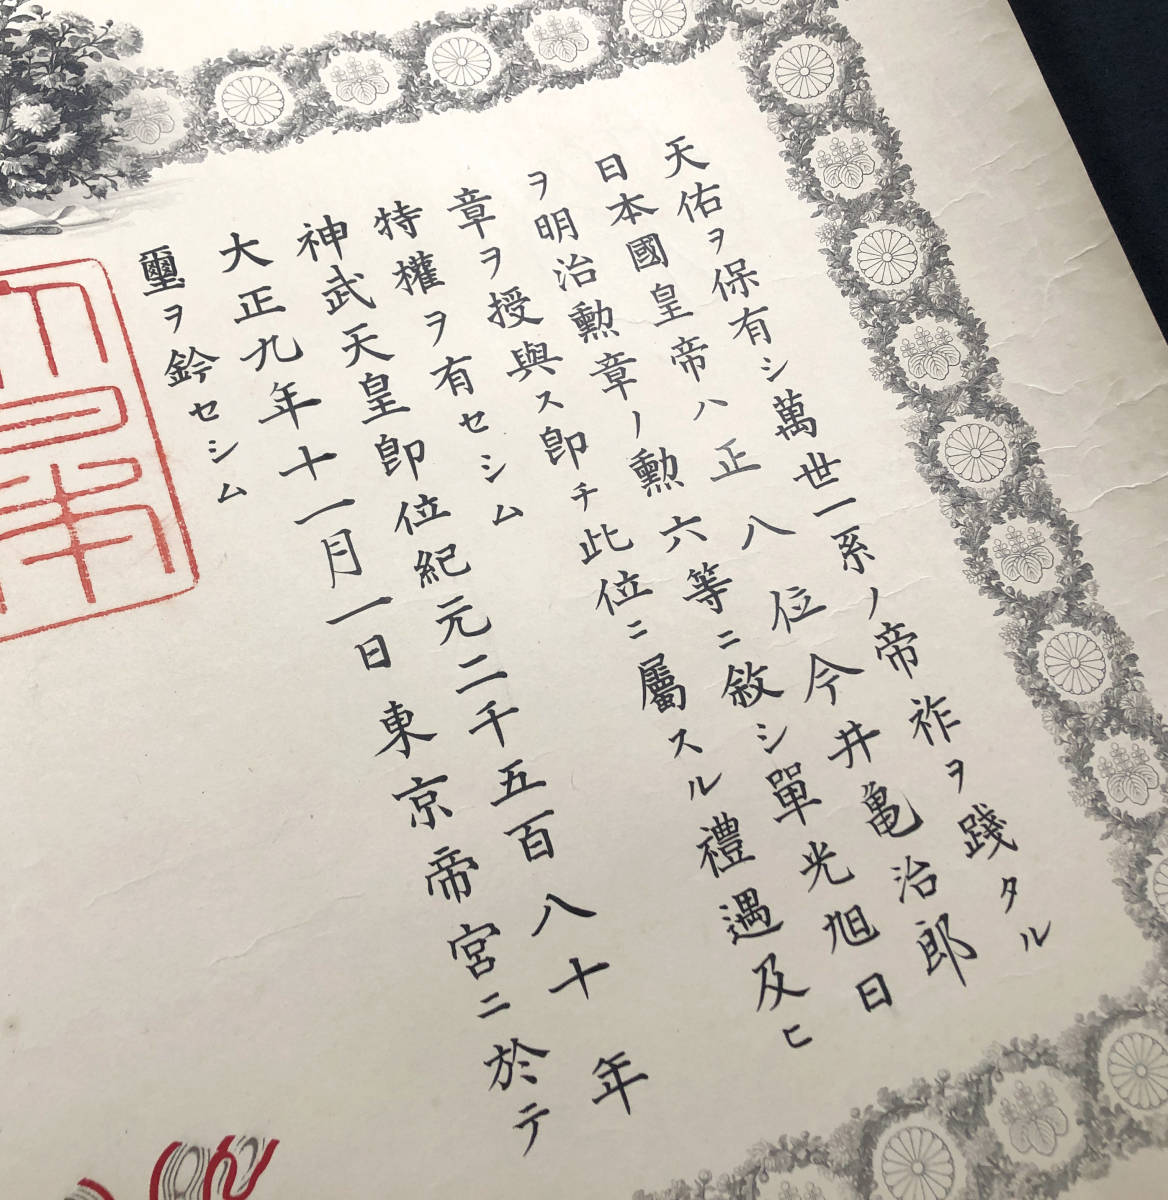 天佑ヲ保有シ萬世一系ノ帝祚ヲ踐タル
日本國皇帝ハ正八位今井亀治郎
ヲ明治勲章ノ勲六等ニ敘シ單光旭日
章ヲ授與ス即チ此位ニ屬スル禮遇及ヒ
特權ヲ有セシム
神武天皇即位紀元二千五百八十年
大正九年十一月一日東京帝宮ニ於テ
璽ヲ鈐セシム